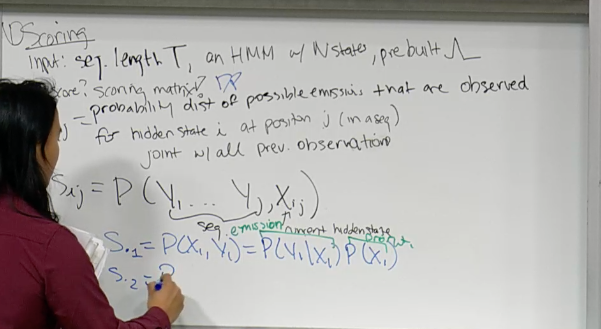 Scoring
Input: seq. length T, an HMM w/ N states, prebuilt
core? scoring matrix?
= probability dist of possible emissions that are observed
for hidden state i at position j (in a seq)
joint w/ all prev. observations
Sij = P(Y1 ... Yj, Xij)
seq. emission current hidden state
S.1 = P(X1, Y1) = P(Y1|X1) P(X1)
S.2 = P